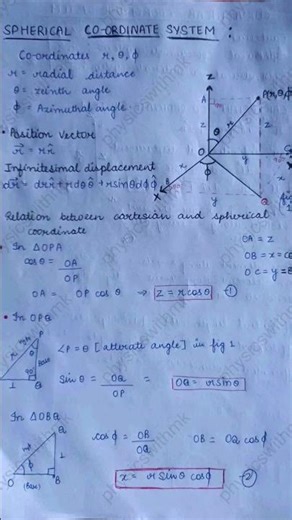 SPHERICAL CO-ORDINATE SYSTEM :
Co-ordinates r, θ, ϕ
r = radial distance
θ = zeinth angle
ϕ = Azimuthal angle
• Position vector
r⃗ = r r̂
Infinitesimal displacement
dr⃗ = dr r̂ + r dθ θ̂ + r sinθ dϕ ϕ̂
Z
A
P(r, θ, ϕ)
z
θ
r
z
O
ϕ
x
y
B
X
y
Q
fig
Relation between cartesian and spherical
coordinate
OA = z
OB = x =
OC = y =
• In ΔOPA
cosθ = OA
OP
OA = OP cosθ → z = r cosθ ①
• In OPQ
P
θ
90°
O
Q
∠P = θ [alterate angle] in fig 1
Sinθ = OQ = OQ = r sinθ
OP
In ΔOBQ
Q
ϕ
O
(Base)
B
cosϕ = OB OB = OQ cosϕ
OQ
x = r sinθ cosϕ — ②
physicswithmk